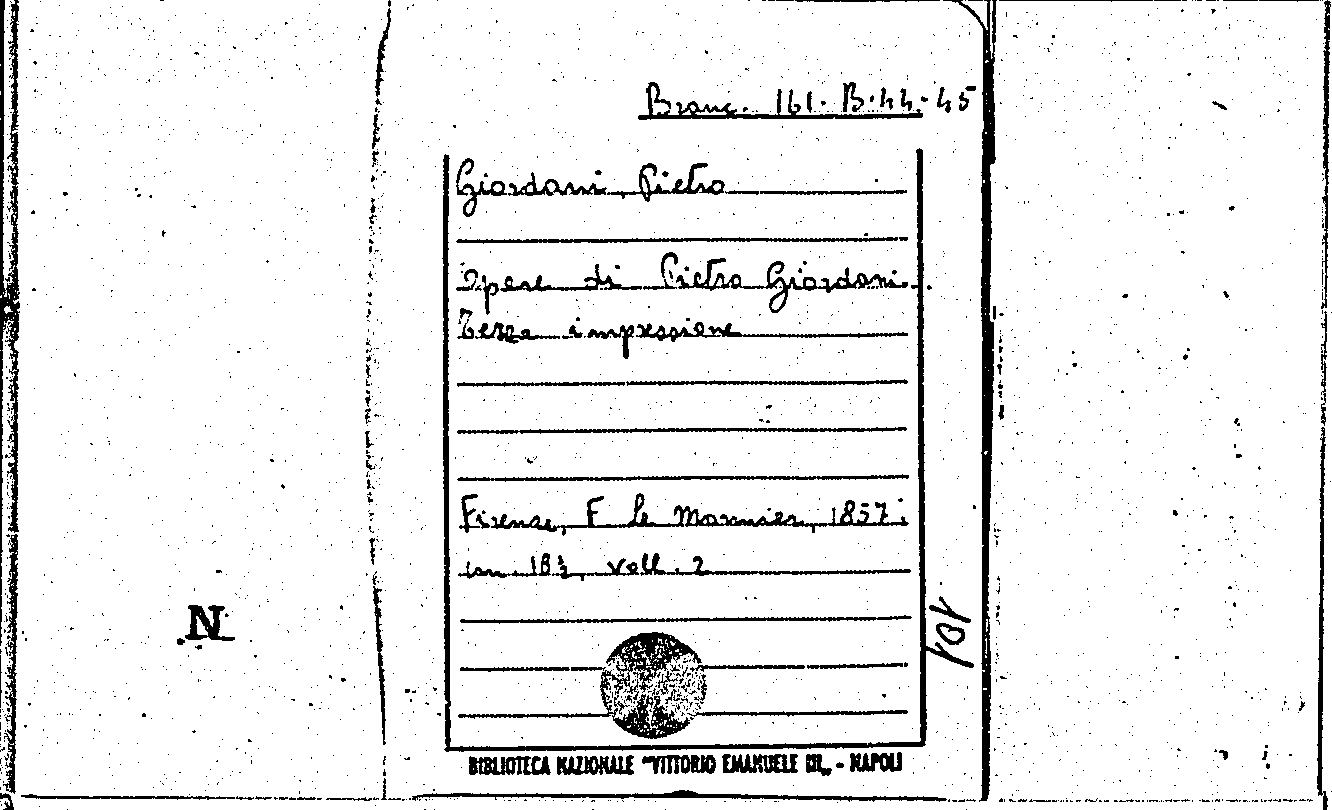 Branc. 161. B. 44-45
Giordani, Pietro
Opere di Pietro Giordani.
Terza impressione
Firenze, F. le Monnier, 1857;
cm. 18½, voll. 2
101
N
BIBLIOTECA NAZIONALE "VITTORIO EMANUELE III„ - NAPOLI